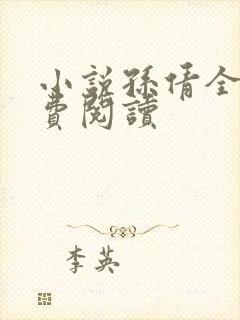 小說孫倩全
費閱讀
李英